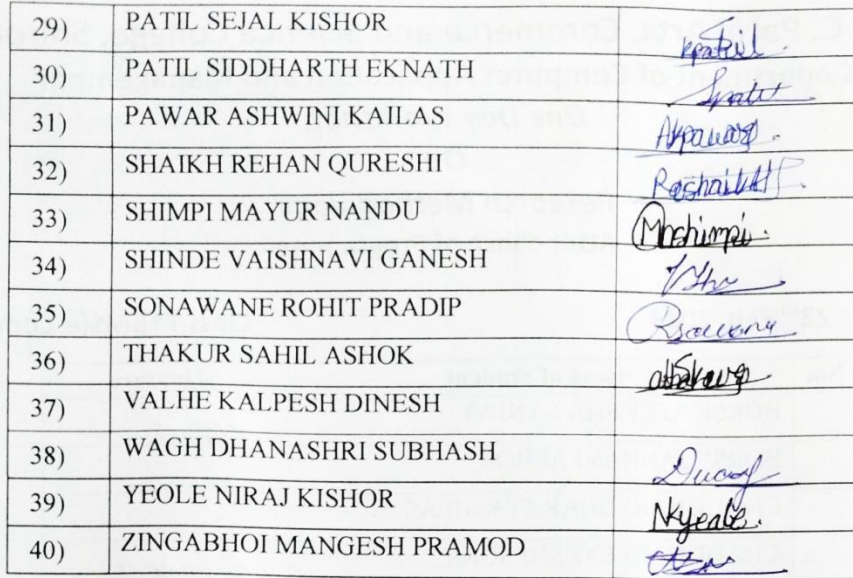 29) PATIL SEJAL KISHOR kpatil
30) PATIL SIDDHARTH EKNATH Spatil
31) PAWAR ASHWINI KAILAS Akpawar
32) SHAIKH REHAN QURESHI
33) SHIMPI MAYUR NANDU Mnshimpi
34) SHINDE VAISHNAVI GANESH
35) SONAWANE ROHIT PRADIP
36) THAKUR SAHIL ASHOK
37) VALHE KALPESH DINESH
38) WAGH DHANASHRI SUBHASH
39) YEOLE NIRAJ KISHOR Nyeole.
40) ZINGABHOI MANGESH PRAMOD